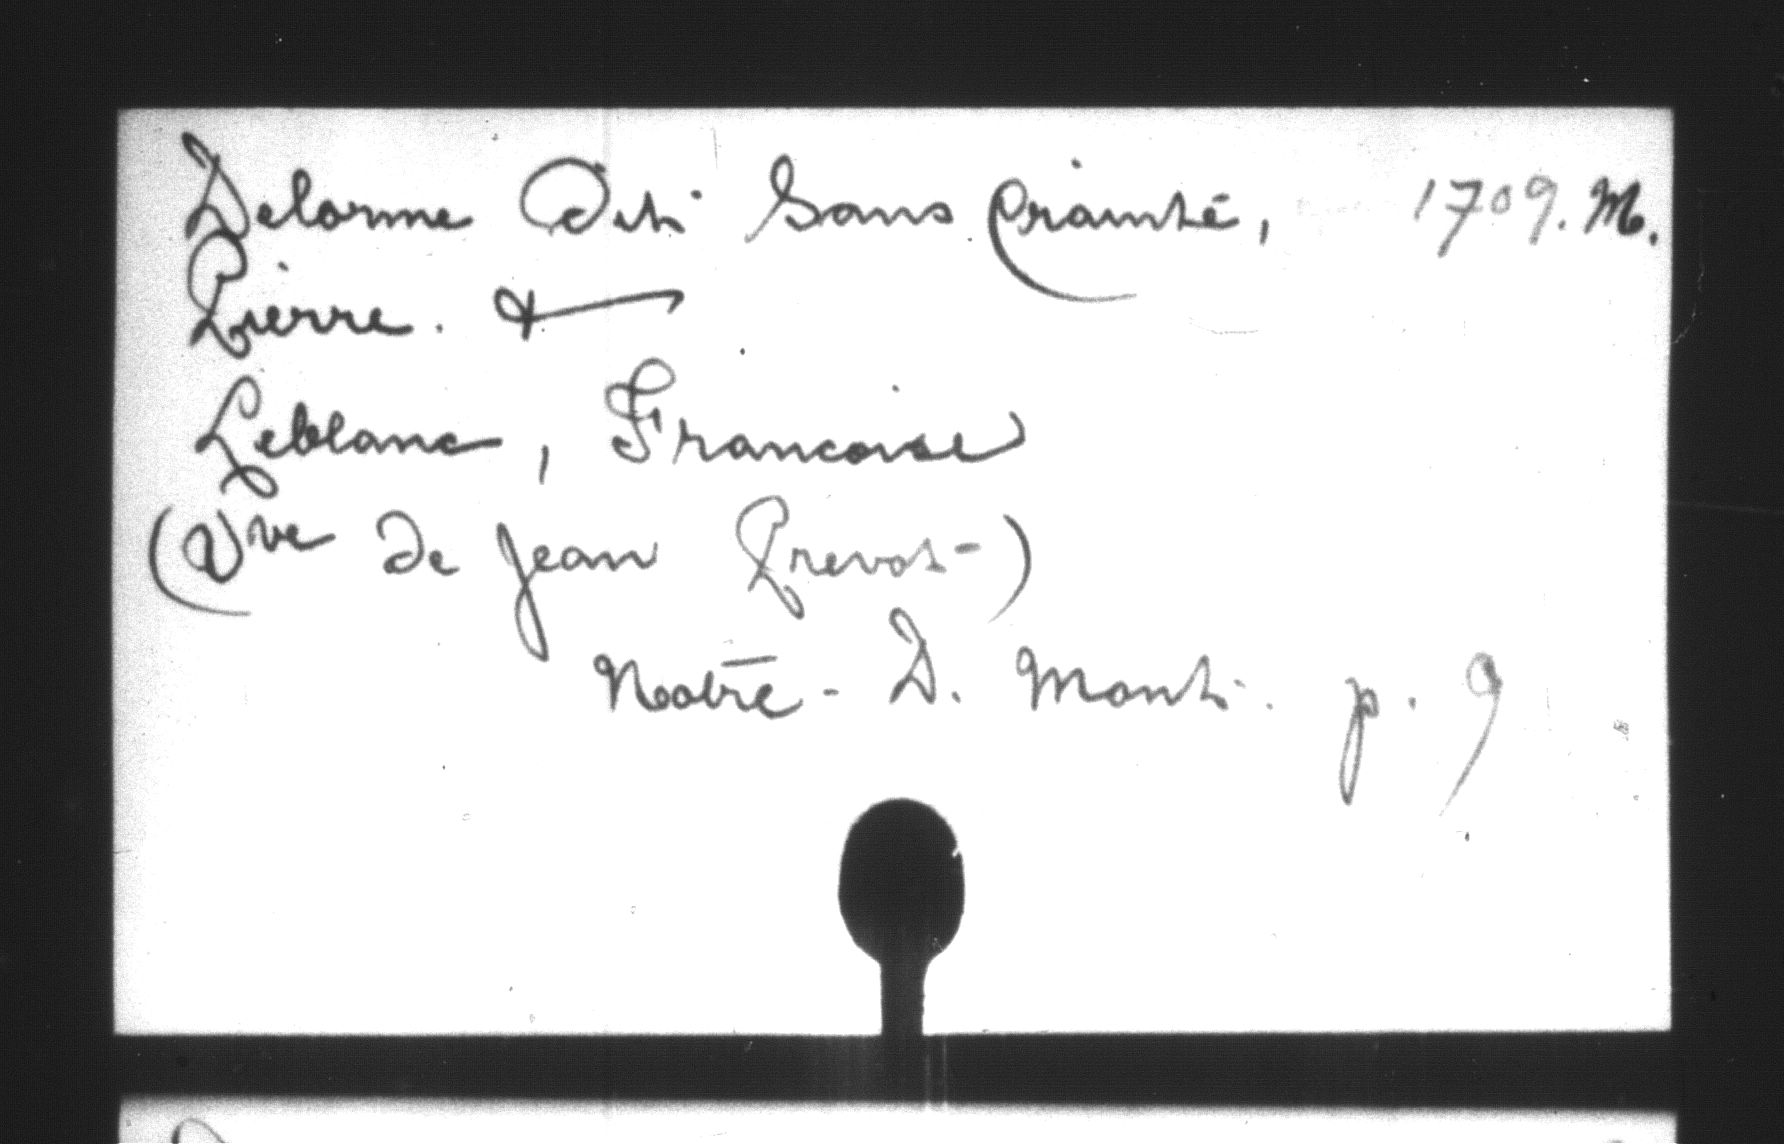 Delorme Dit Sans Crainte, 1709. M.
Pierre. &
Leblanc, Francoise
(Vve de Jean Prevot)
Notre-D. Mont. p. 9